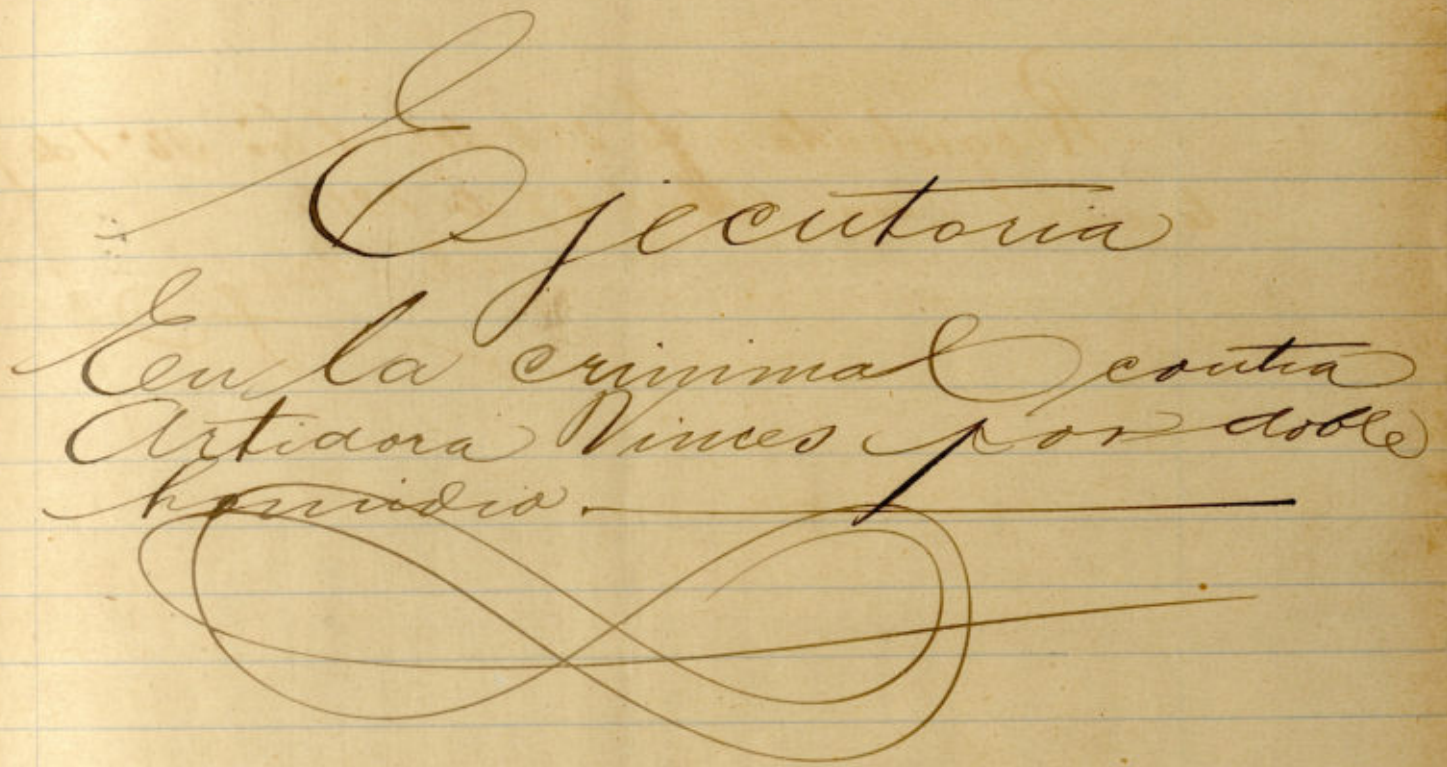 Ejecutoria
En la criminal contra
Artidora Vinces por doble
homicidio.